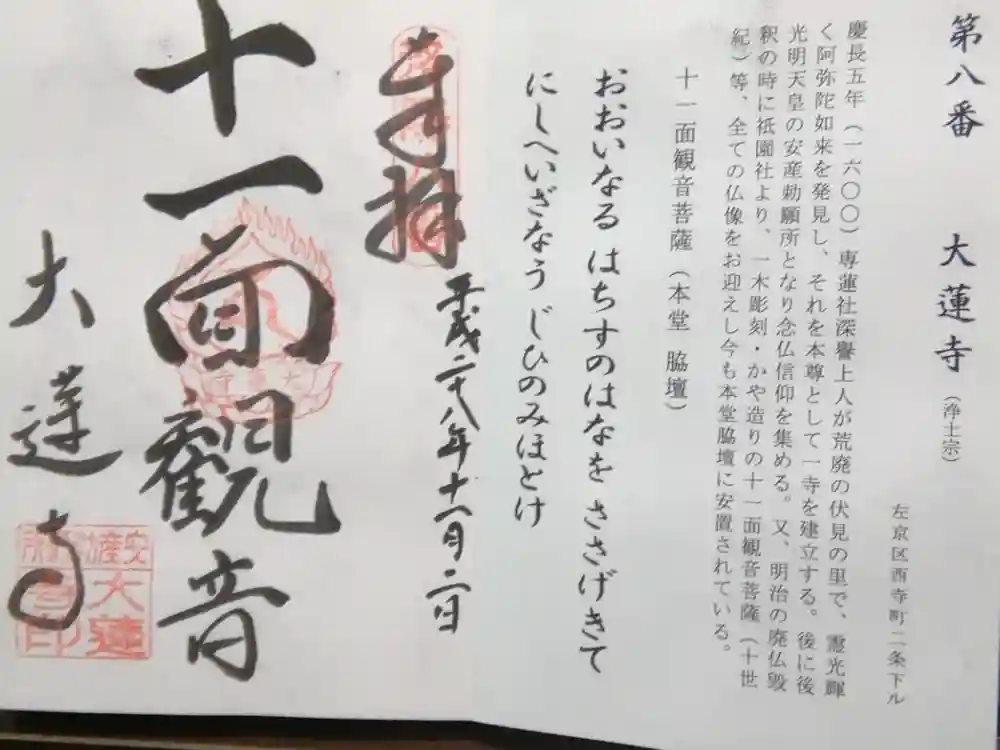 第八番　大蓮寺（浄土宗）
左京区西寺町二条下ル
慶長五年（一六〇〇）専蓮社深譽上人が荒廃の伏見の里で、霊光輝
く阿弥陀如来を発見し、それを本尊として一寺を建立する。後に後
光明天皇の安産勅願所となり念仏信仰を集める。又、明治の廃仏毀
釈の時に祇園社より、一木彫刻・かや造りの十一面観音菩薩（十世
紀）等、全ての仏像をお迎えし今も本堂脇壇に安置されている。
十一面観音菩薩（本堂　脇壇）
おおいなる はちすのはなを ささげきて
にしへいざなう じひのみほとけ
奉拝
平成二十八年十一月二日
十一面観音
大蓮寺
安産
大蓮